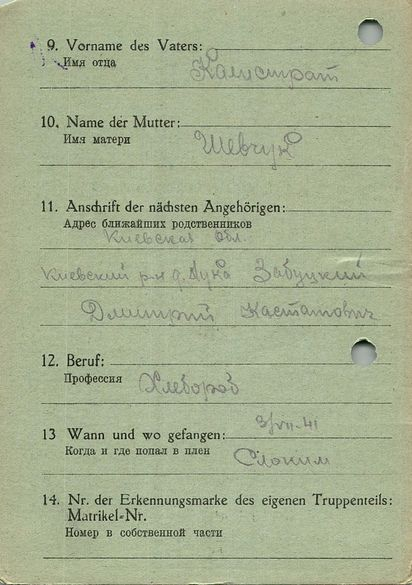 9. Vorname des Vaters:
Имя отца
Калистрат
10. Name der Mutter:
Имя матери
Шевчук
11. Anschrift der nächsten Angehörigen:
Адрес ближайших родственников
Киевская обл.
Киевский р-н д. Забуцкий
Дмитрий
12. Beruf:
Профессия
Хлебороб
13 Wann und wo gefangen:
3/VII-41
Когда и где попал в плен
Слоним
14. Nr. der Erkennungsmarke des eigenen Truppenteils:
Matrikel-Nr.
Номер в собственной части